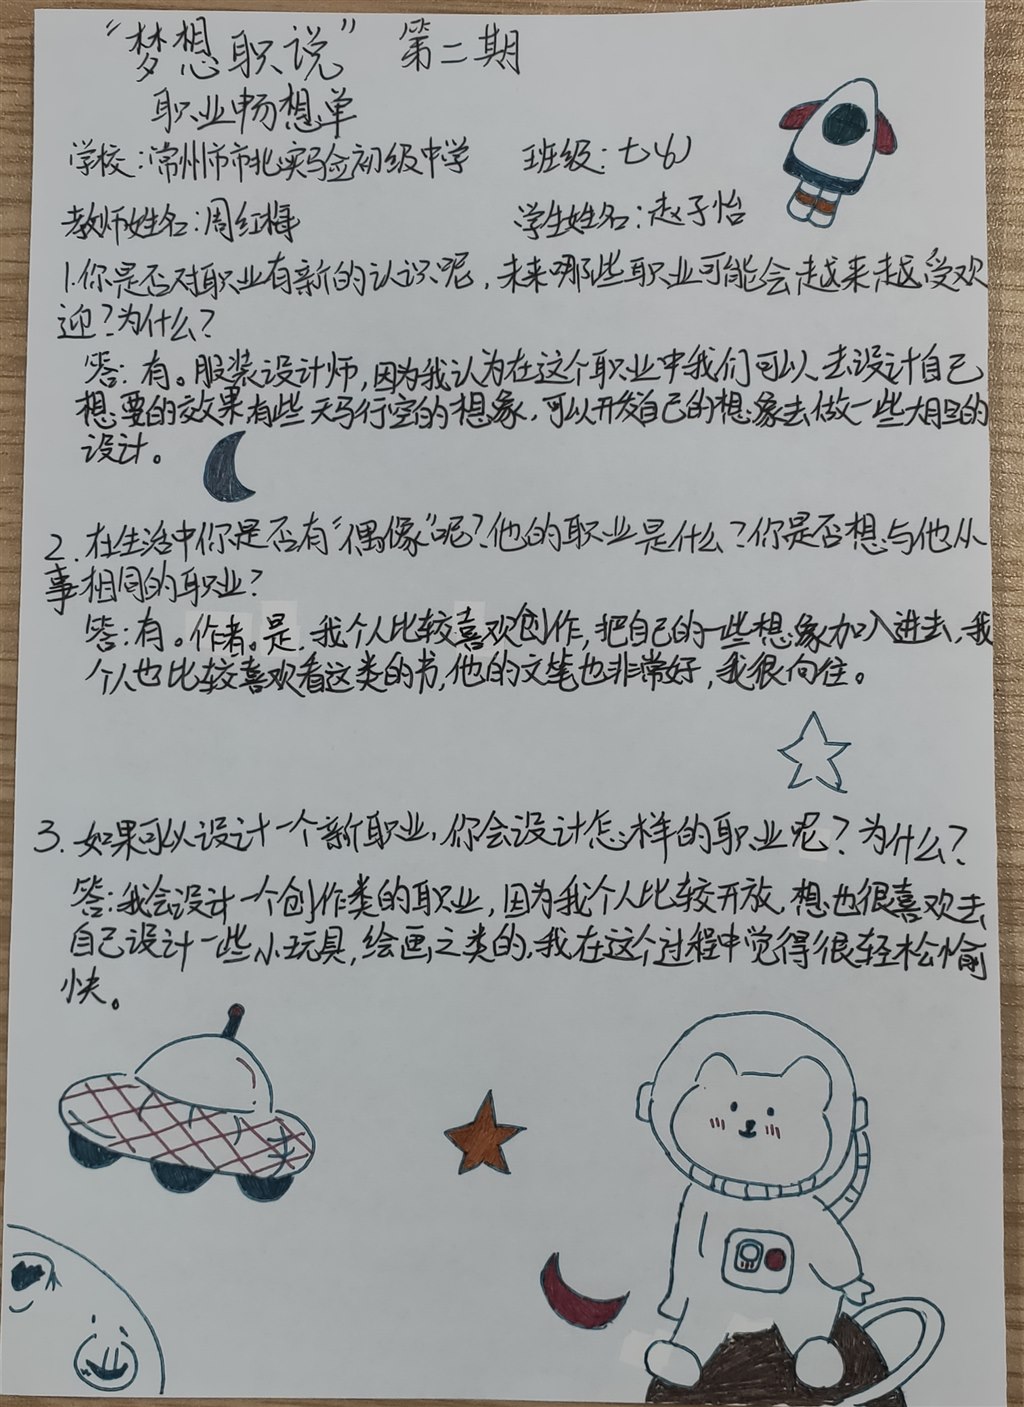 “梦想职说”第二期
职业畅想单
学校：常州市市北实验初级中学 班级：七
教师姓名：周红梅 学生姓名：赵子怡
1.你是否对职业有新的认识呢，未来哪些职业可能会越来越受欢
迎？为什么？
答：有。服装设计师，因为我认为在这个职业中我们可以去设计自己
想要的效果有些天马行空的想象，可以开发自己的想象去做一些大胆的
设计。
2.在生活中你是否有“偶像”呢？他的职业是什么？你是否想与他从
事相同的职业？
答：有。作者。是，我个人比较喜欢创作，把自己的一些想象加入进去，我
个人也比较喜欢看这类的书，他的文笔也非常好，我很向往。
3.如果可以设计一个新职业，你会设计怎样的职业呢？为什么？
答：我会设计一个创作类的职业，因为我个人比较开放，想也很喜欢去
自己设计一些小玩具，绘画之类的，我在这个过程中觉得很轻松愉
快。